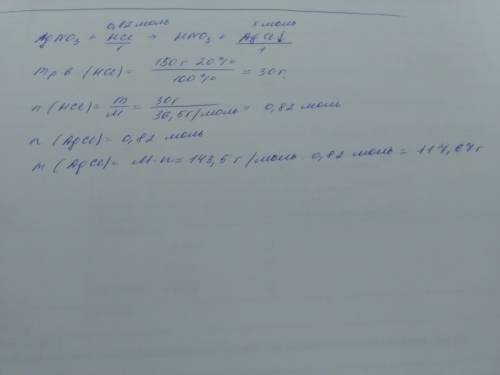 0,82 моль x моль
AgNO3 + HCl → HNO3 + AgCl↓
1 1
m р.в (HCl) = 150 г · 20 % / 100 % = 30 г.
n (HCl) = m / M = 30 г / 36,5 г/моль = 0,82 моль
n (AgCl) = 0,82 моль
m (AgCl) = M · n = 143,5 г/моль · 0,82 моль = 117,67 г